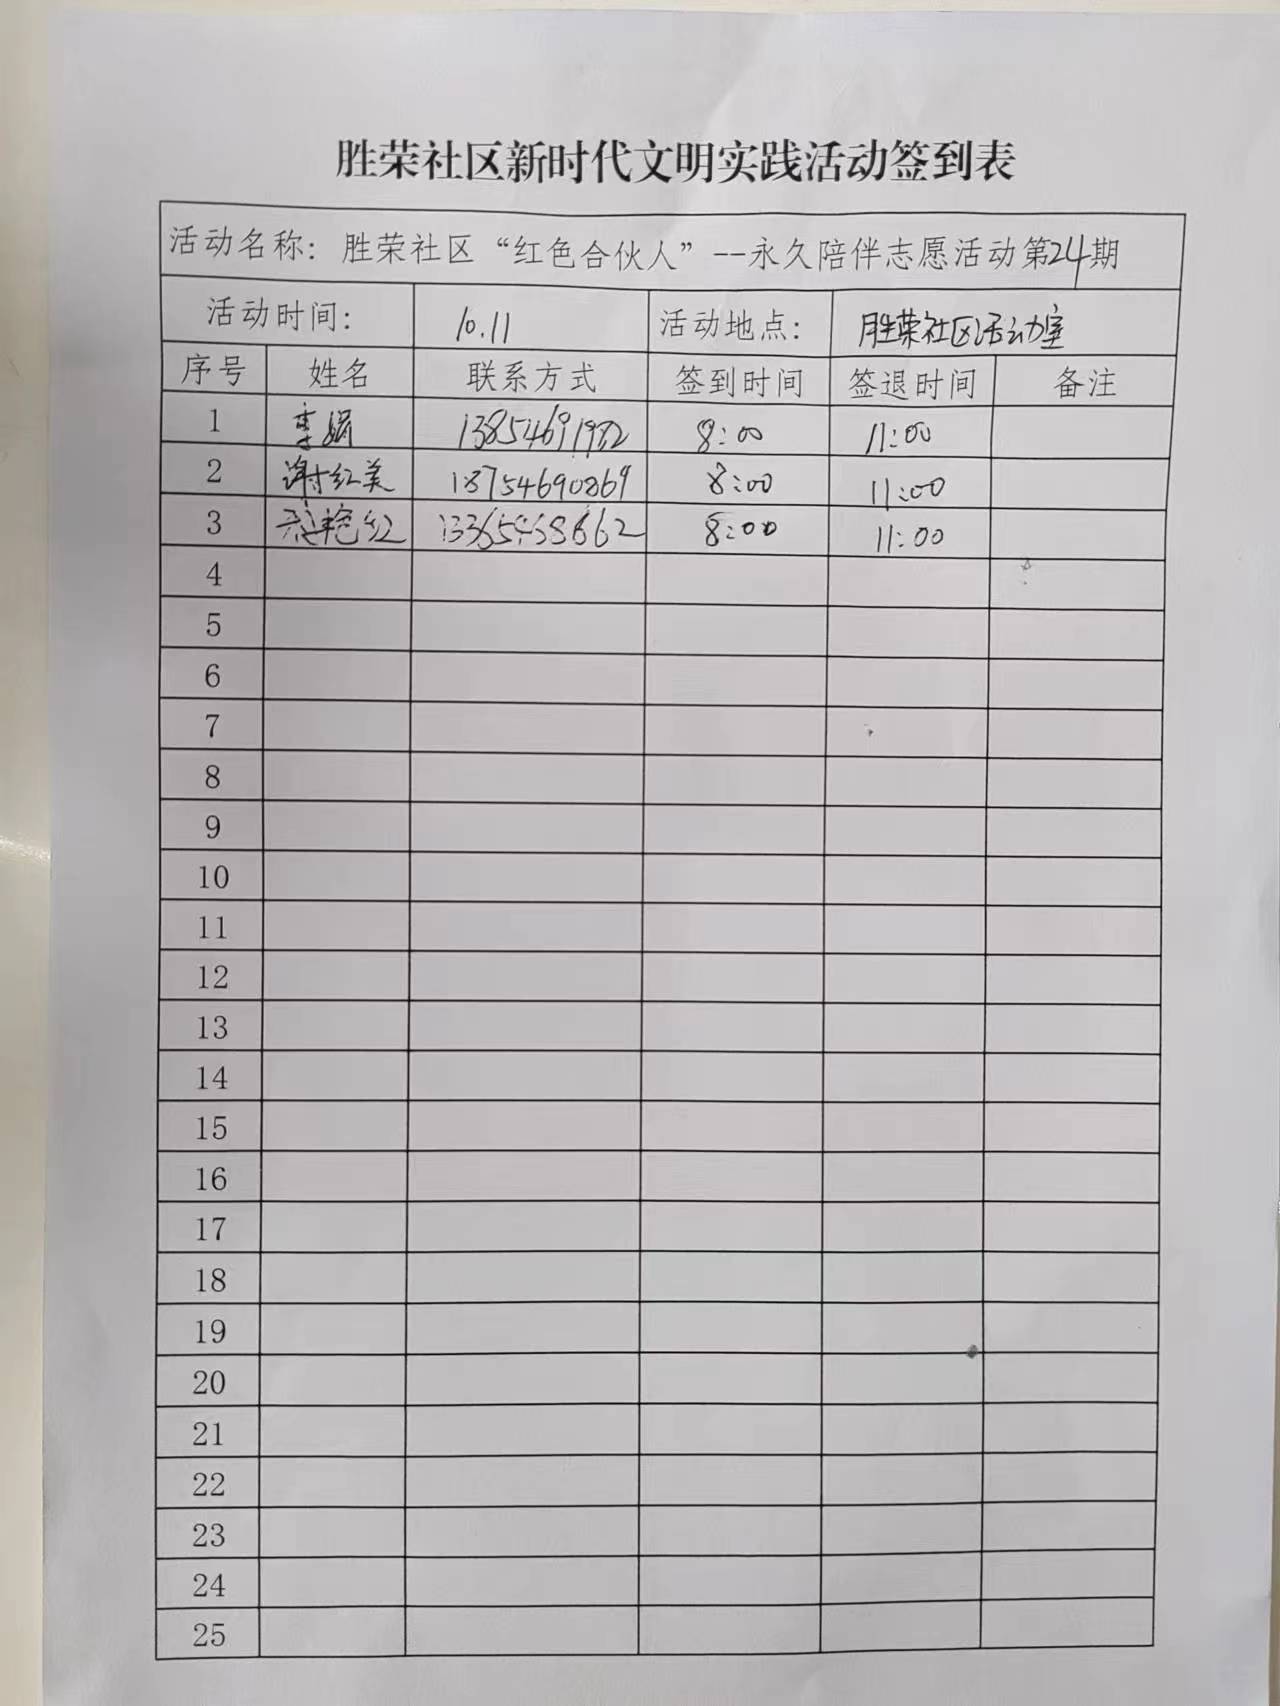 胜荣社区新时代文明实践活动签到表
活动名称：胜荣社区“红色合伙人”--永久陪伴志愿活动第24期
活动时间： 10.11 活动地点： 胜荣社区活动室
序号 姓名 联系方式 签到时间 签退时间 备注
1 李娟 8:00 11:00
2 谢红美 18754690869 8:00 11:00
3 艳红 8:00 11:00
4
5
6
7
8
9
10
11
12
13
14
15
16
17
18
19
20
21
22
23
24
25